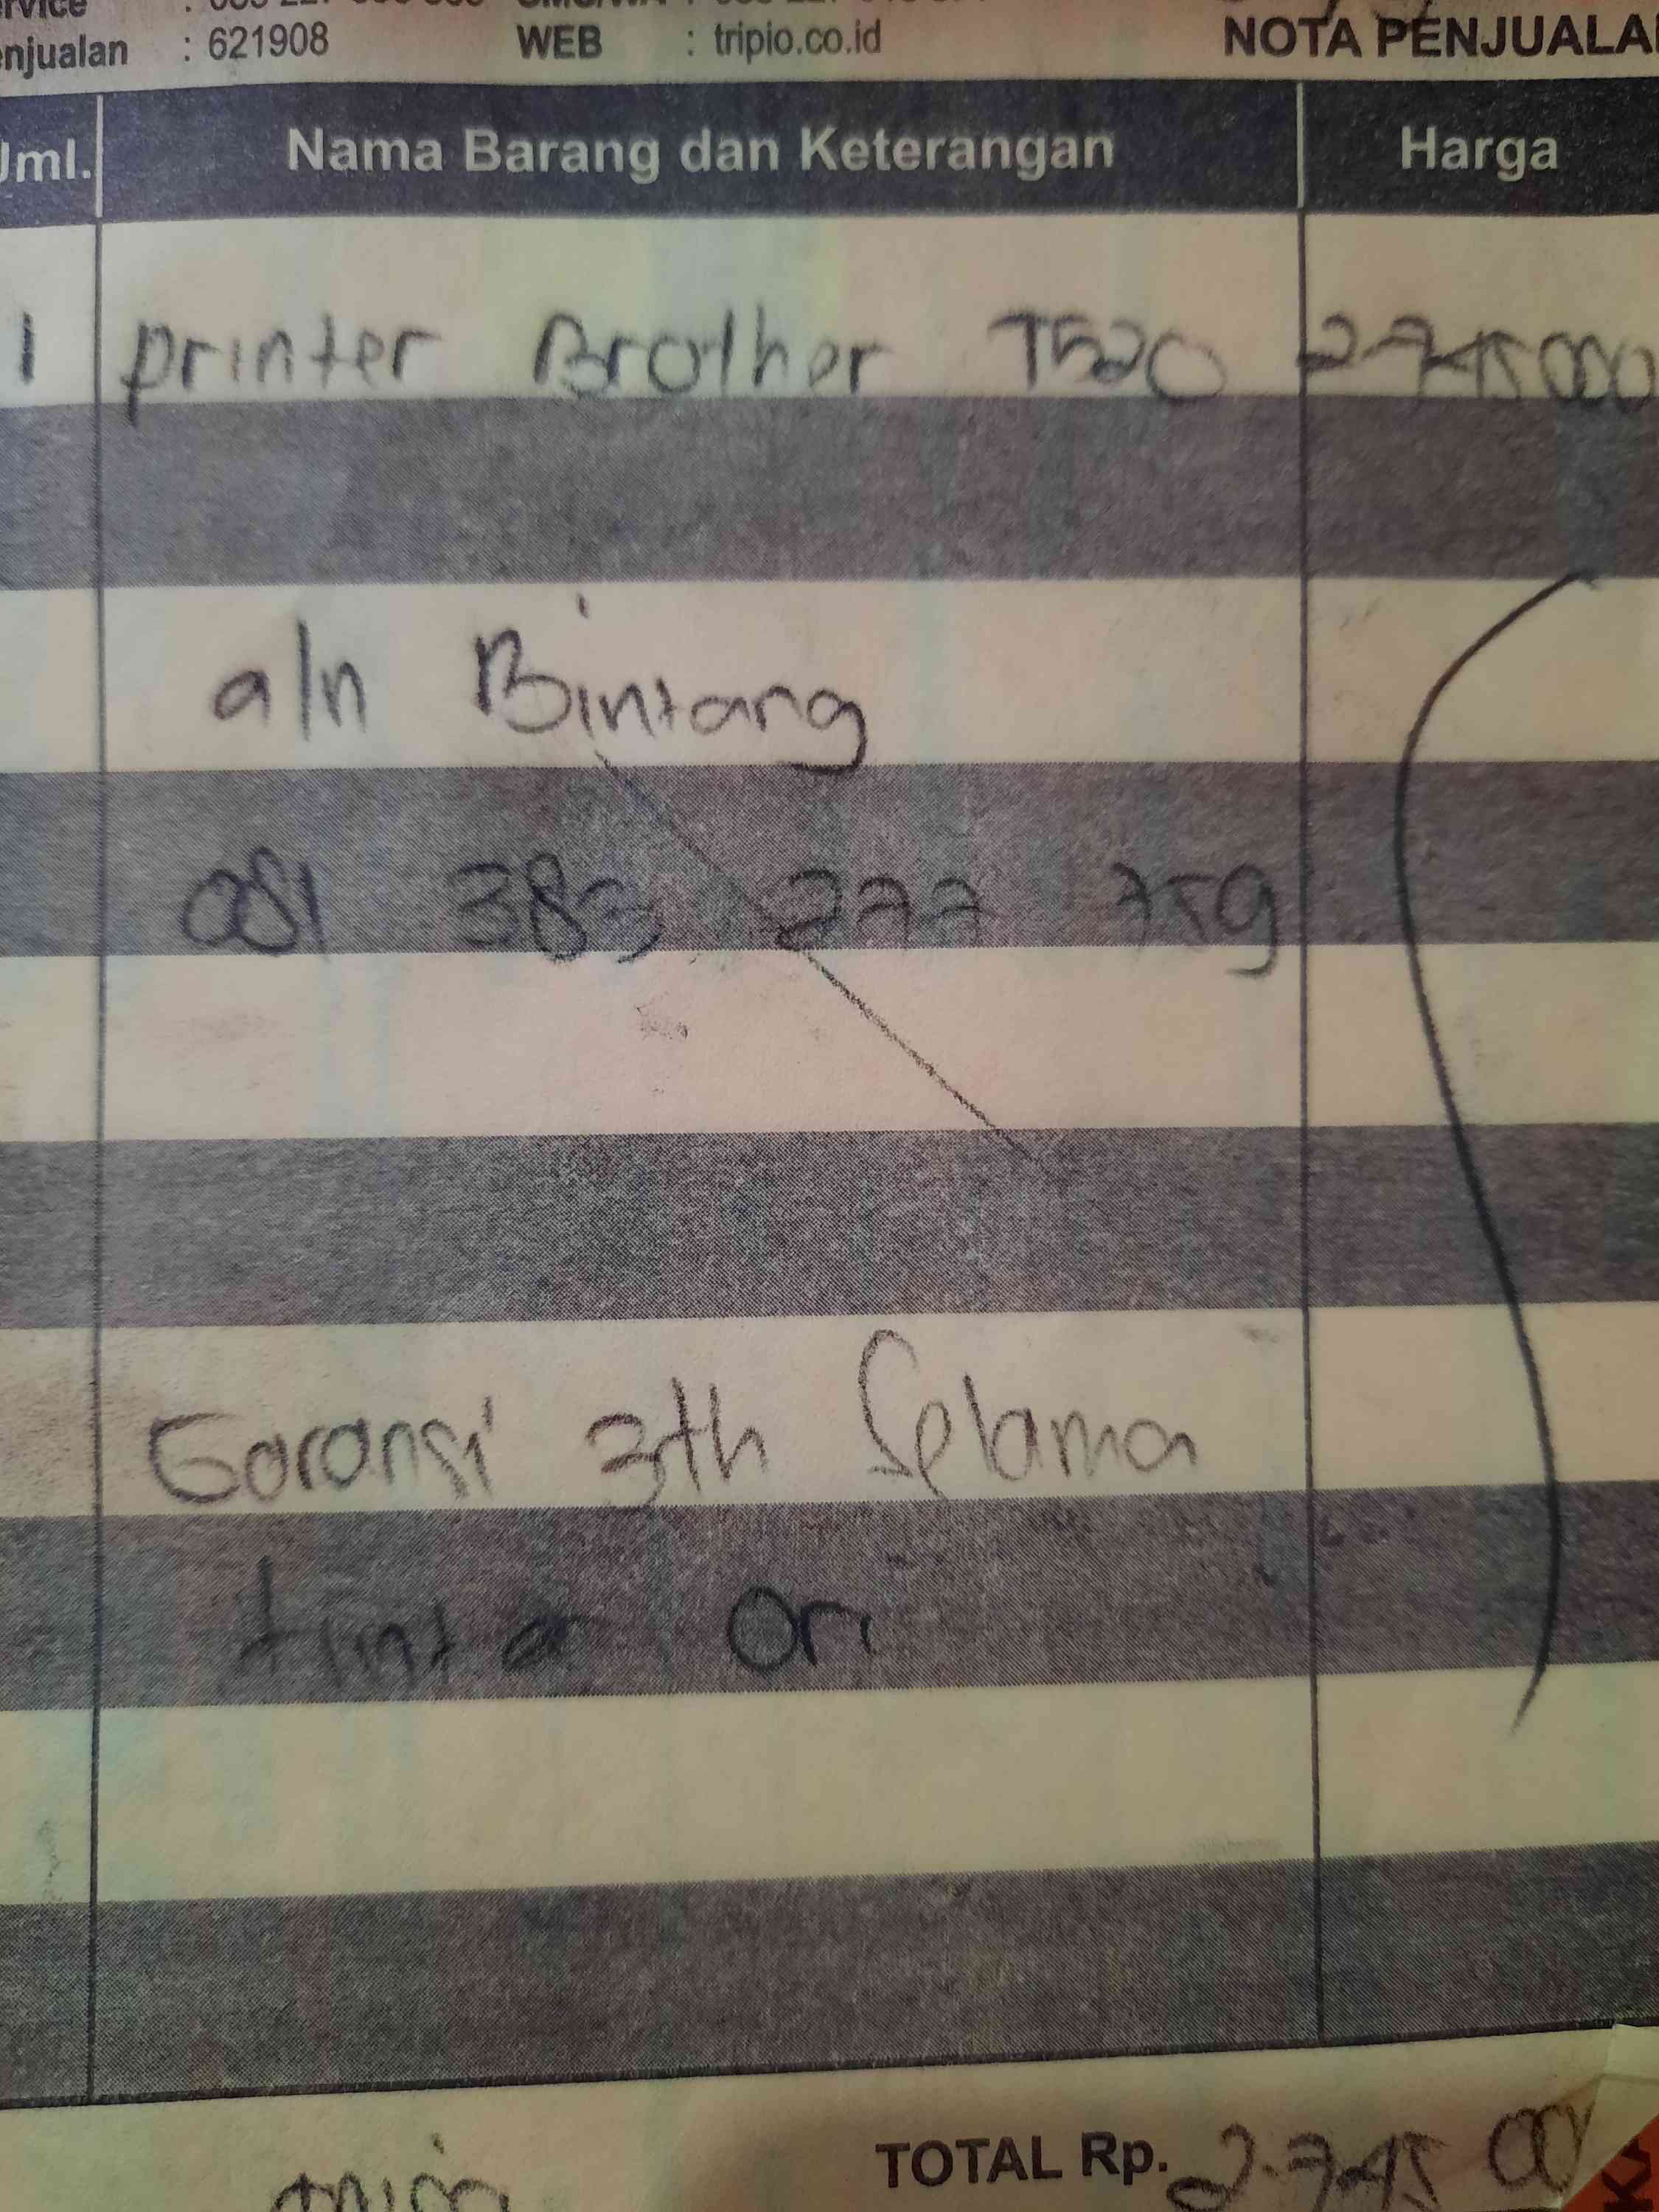 : 621908 WEB : tripio.co.id NOTA PENJUALAN
Jml. Nama Barang dan Keterangan Harga
1 printer Brother T520 2.745 000
a/n Bintang
081 383 277 759
Garansi 3th Selama
tinta Ori
TOTAL Rp. 2.745 000